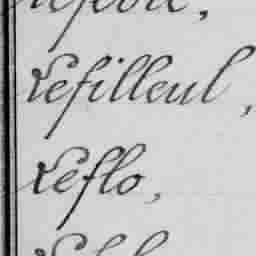 Lefilleul,
Leflo,